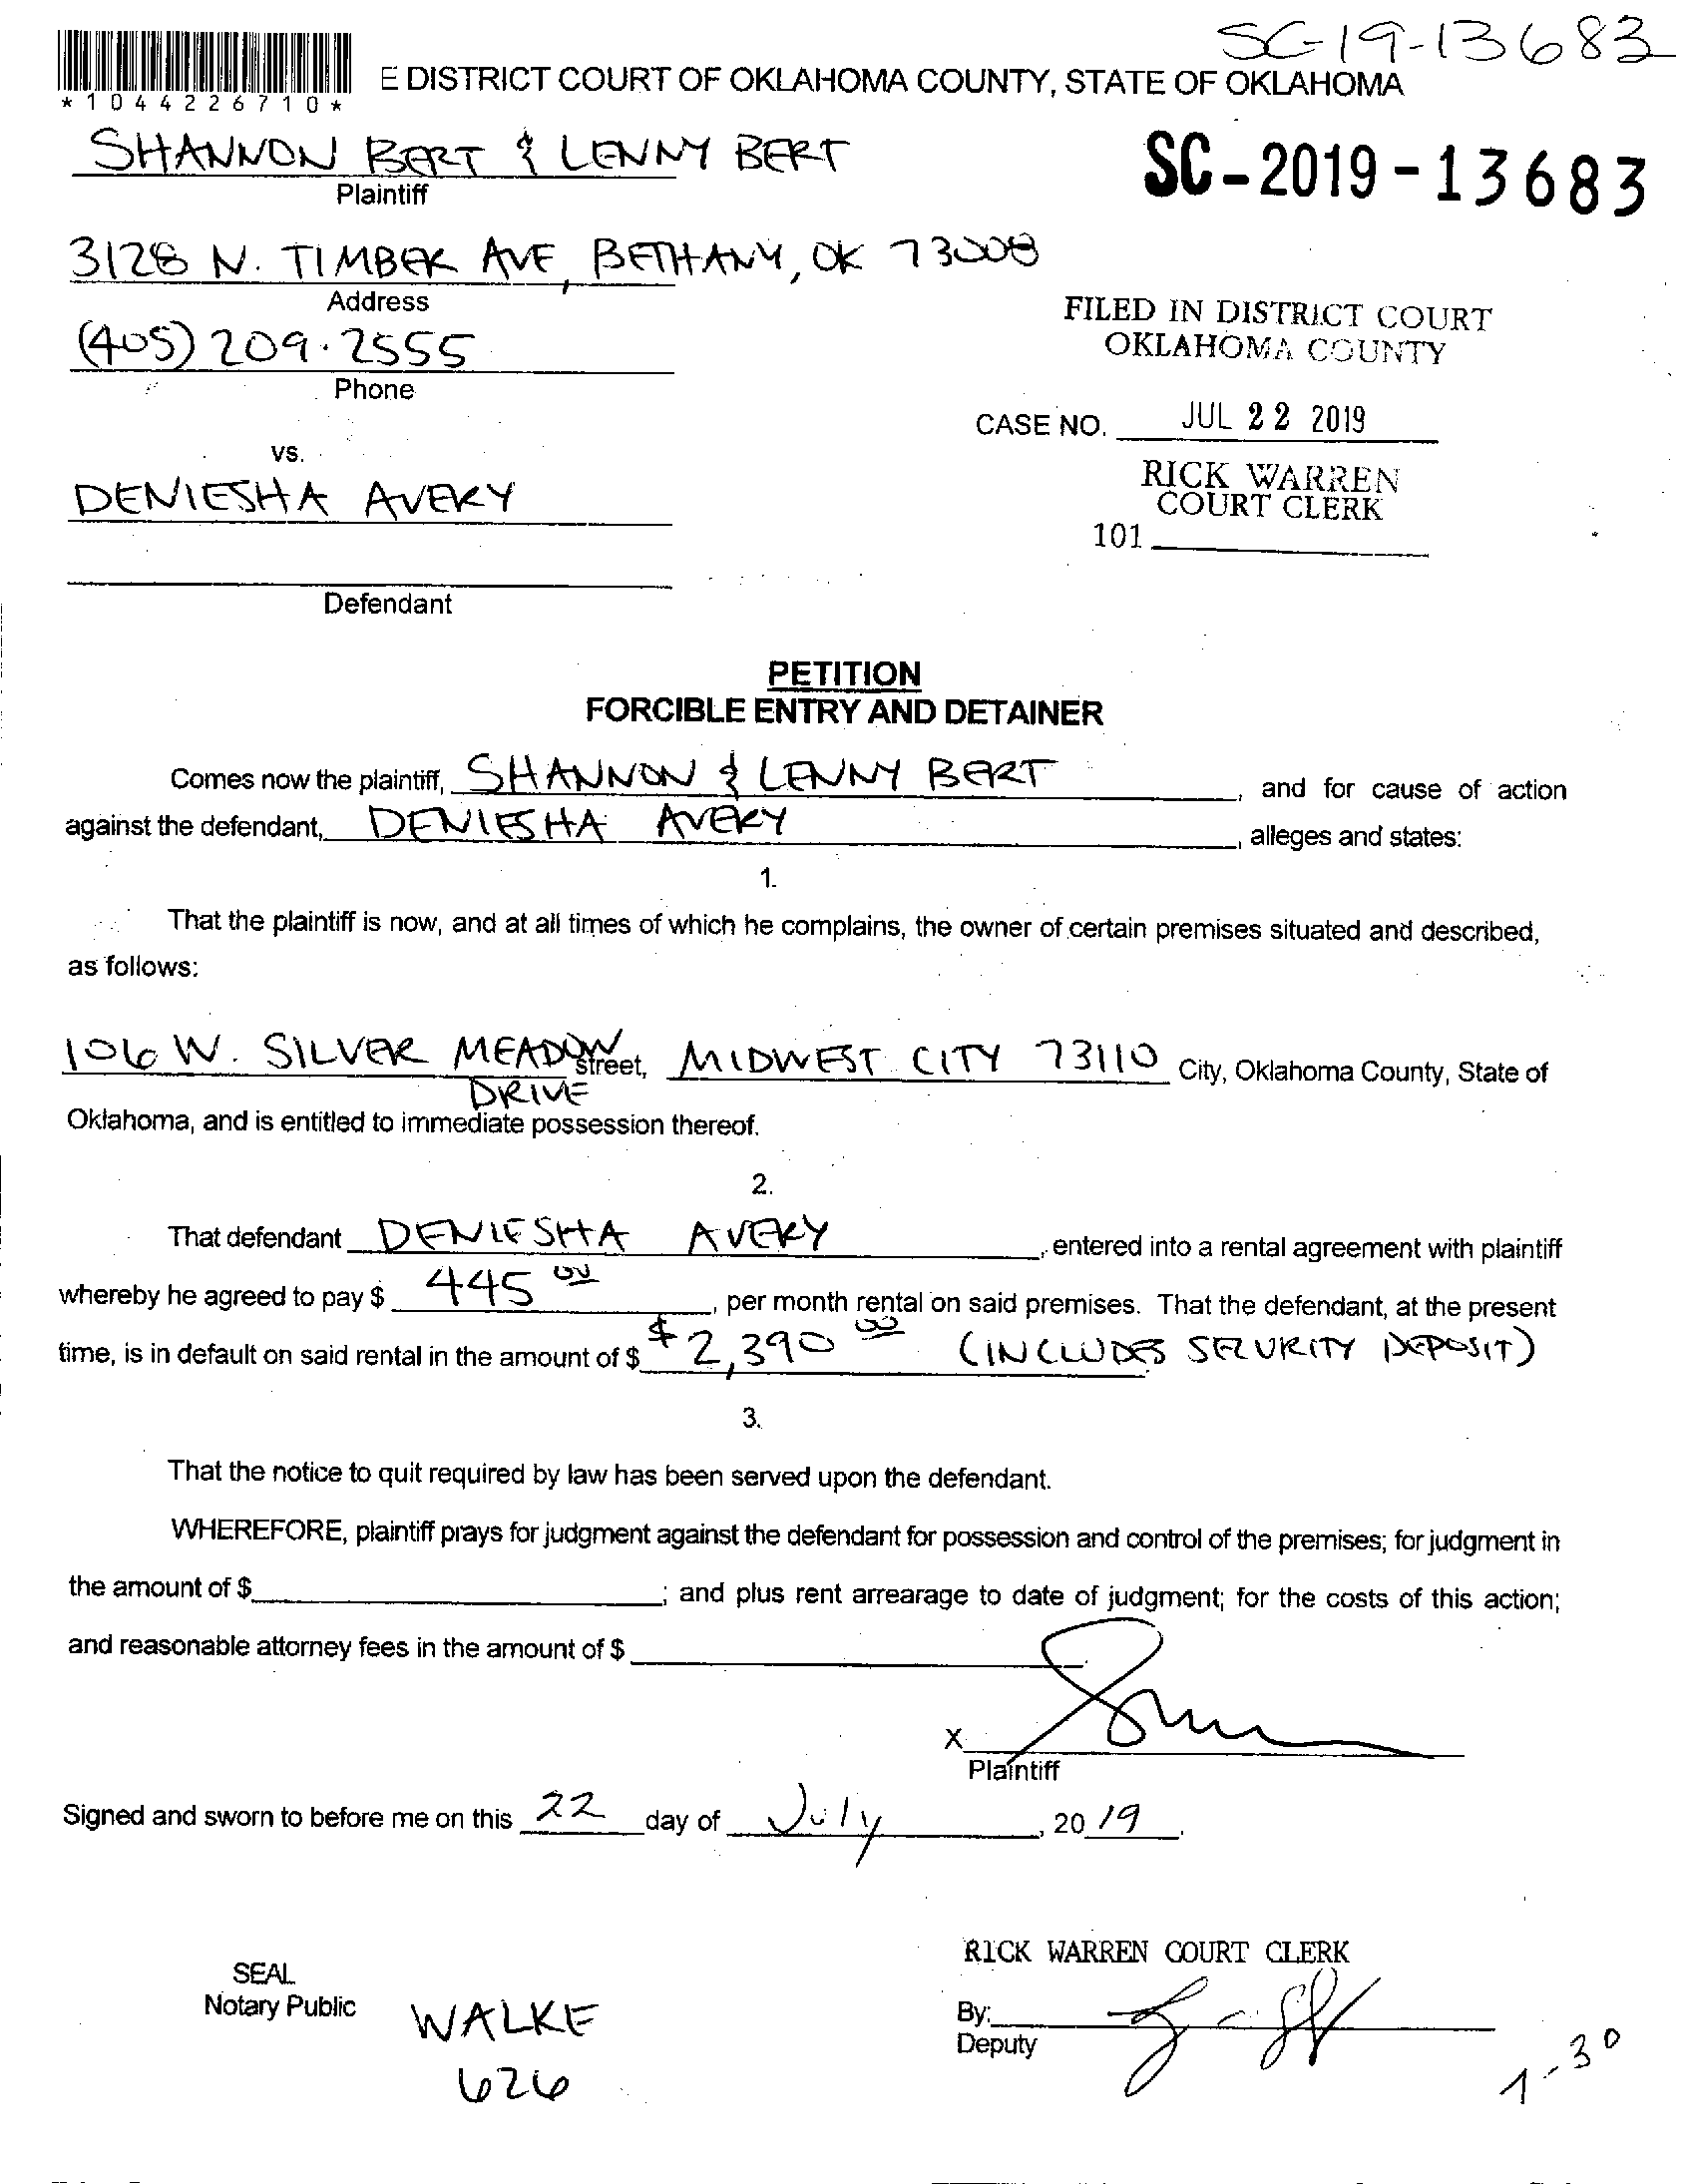 SC-19-13683
*1044226710*
E DISTRICT COURT OF OKLAHOMA COUNTY, STATE OF OKLAHOMA
SHANNON BERT & LENNY BERT
Plaintiff
SC-2019-13683
3128 N. TIMBER AVE, BETHANY, OK 73008
Address
(405) 209.2555
Phone
FILED IN DISTRICT COURT
OKLAHOMA COUNTY
CASE NO. JUL 22 2019
vs.
RICK WARREN
COURT CLERK
DENIESHA AVERY
101
Defendant
PETITION
FORCIBLE ENTRY AND DETAINER
Comes now the plaintiff, SHANNON & LENNY BERT, and for cause of action
against the defendant, DENIESHA AVERY, alleges and states:
1.
That the plaintiff is now, and at all times of which he complains, the owner of certain premises situated and described,
as follows:
106 W. SILVER MEADOW street, MIDWEST CITY 73110 City, Oklahoma County, State of
DRIVE
Oklahoma, and is entitled to immediate possession thereof.
2.
That defendant DENIESHA AVERY, entered into a rental agreement with plaintiff
whereby he agreed to pay $ 445 00, per month rental on said premises. That the defendant, at the present
time, is in default on said rental in the amount of $ $2,390 00 (INCLUDES SECURITY DEPOSIT)
3.
That the notice to quit required by law has been served upon the defendant.
WHEREFORE, plaintiff prays for judgment against the defendant for possession and control of the premises; for judgment in
the amount of $ ; and plus rent arrearage to date of judgment; for the costs of this action;
and reasonable attorney fees in the amount of $
X
Plaintiff
Signed and sworn to before me on this 22 day of July, 20 19.
RICK WARREN COURT CLERK
SEAL
Notary Public
WALKE
626
By:
Deputy
1-30